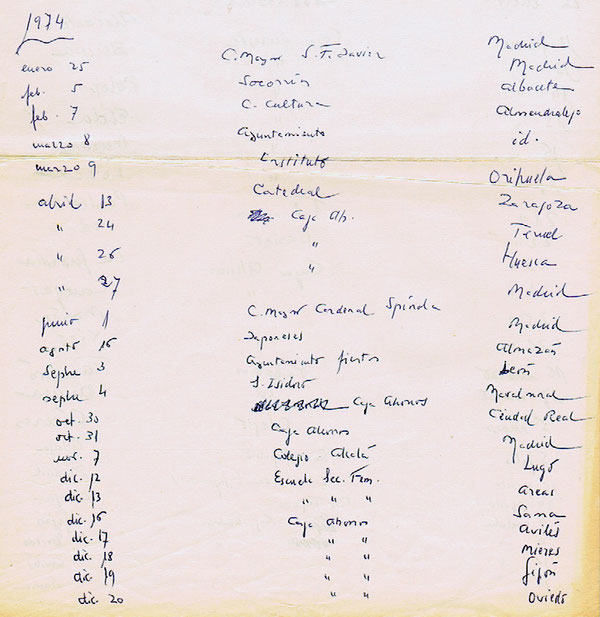 1974
enero 25 C. Mayor S. F. Javier Madrid
feb. 5 Madrid
feb. 7 C. Cultura Albacete
marzo 8 Ayuntamiento Almendralejo
marzo 9 Instituto id.
abril 13 Catedral Orihuela
" 24 Caja Ah. Zaragoza
" 26 " Teruel
" 27 " Huesca
junio 1 C. Mayor Cardenal Spínola Madrid
agosto 16 Japoneses Madrid
sepbre 3 Ayuntamiento fiestas Almazán
sepbre 4 S. Isidoro León
oct. 30 Caja Ahorros Navalmoral
oct. 31 Caja Ahorros Ciudad Real
nov. 7 Colegio Alcalá Madrid
dic. 12 Escuela Sec. Fem. Lugo
dic. 13 " " " Areas
dic. 16 Caja Ahorros Sama
dic. 17 " " Avilés
dic. 18 " " Mieres
dic. 19 " " Gijón
dic. 20 " " Oviedo